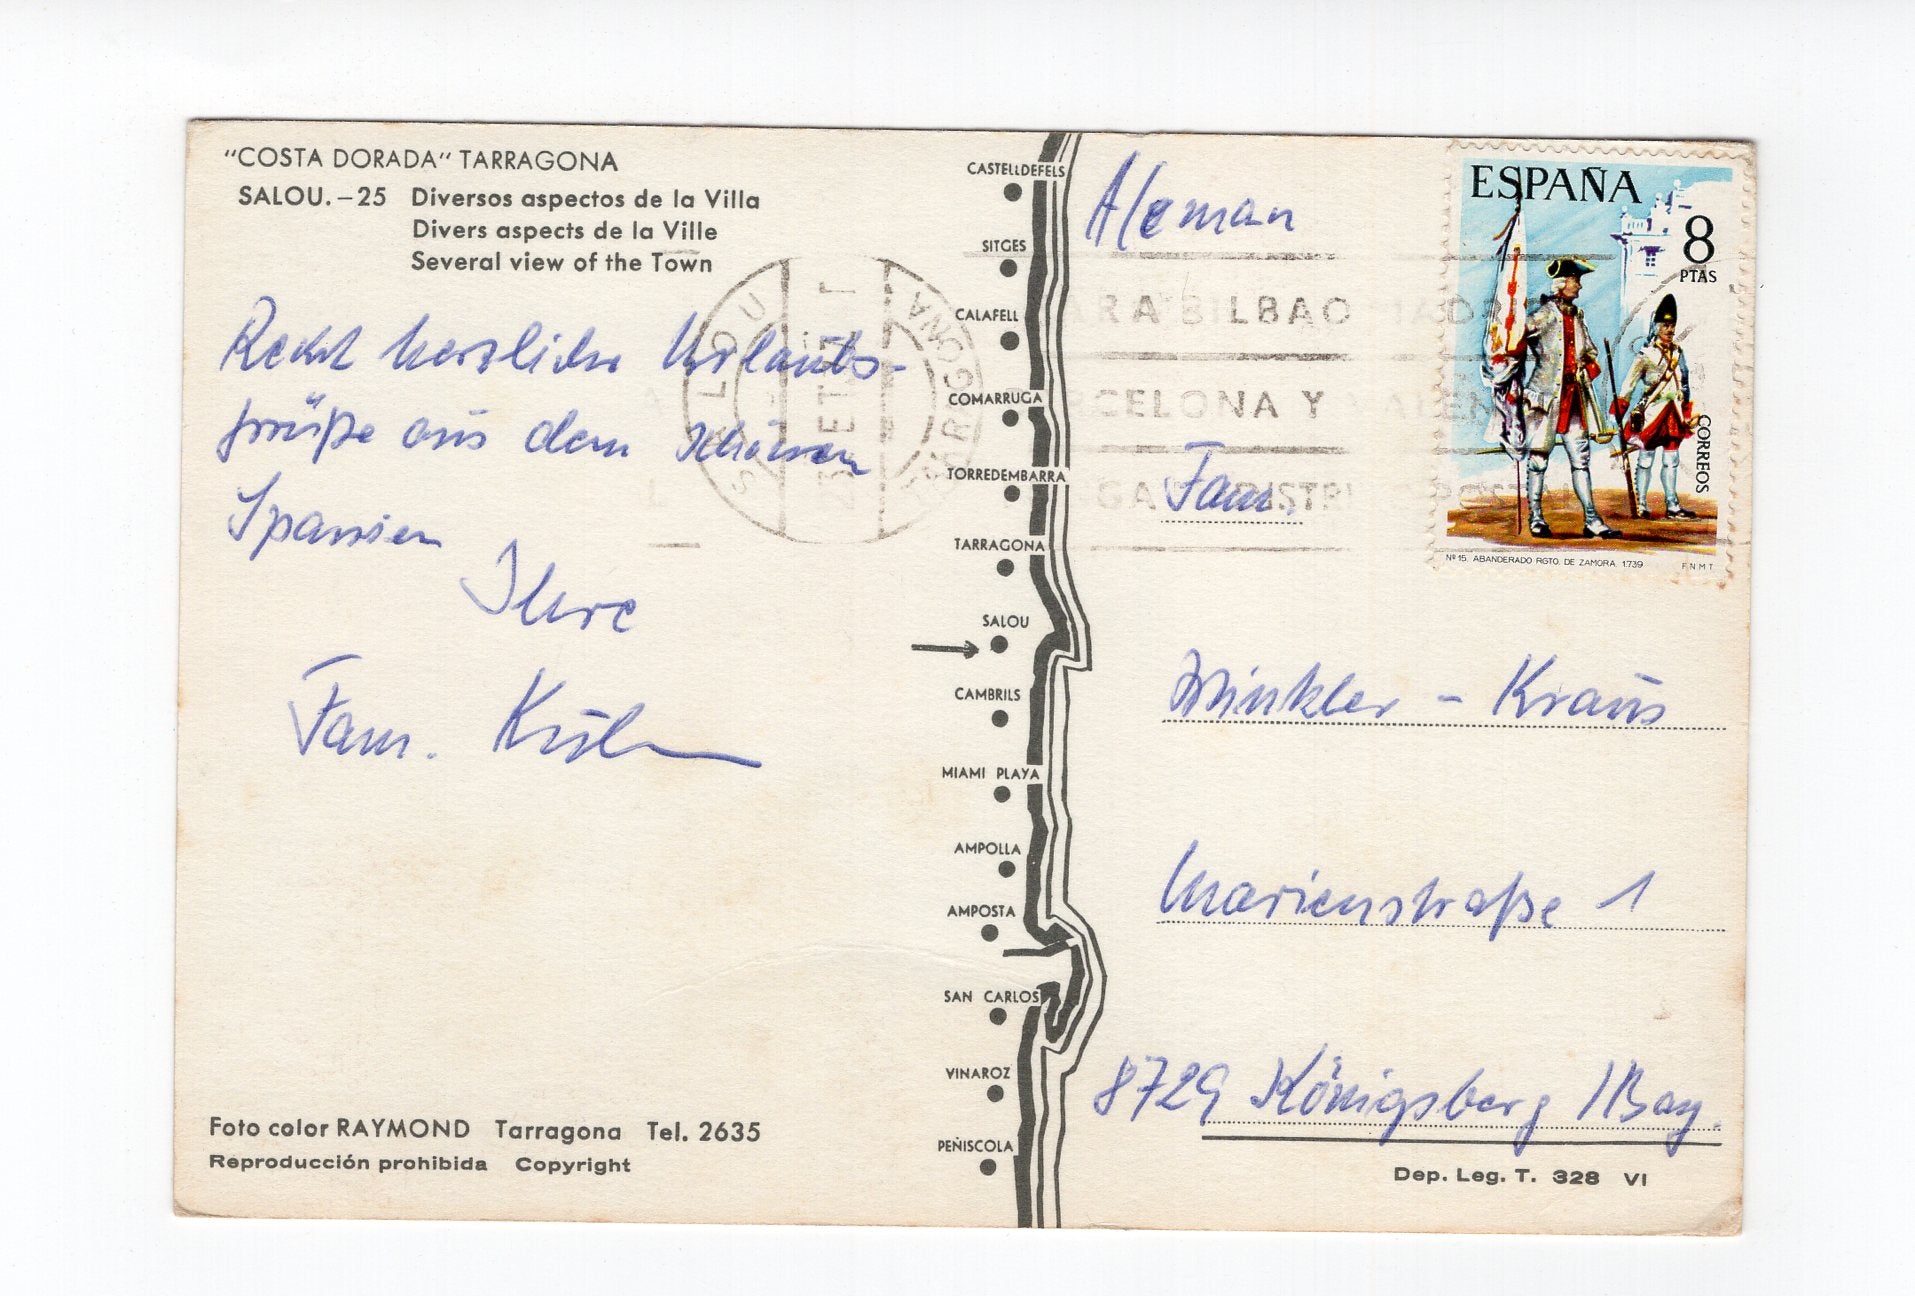 "COSTA DORADA" TARRAGONA
SALOU.-25 Diversos aspectos de la Villa
Divers aspects de la Ville
Several view of the Town
Recht herzliche Urlaubs-
grüße aus dem schönen
Spanien
Ihre
Fam. Kühn
Foto color RAYMOND Tarragona Tel. 2635
Reproducción prohibida Copyright
SALOU
TARRAGONA
CASTELLDEFELS
SITGES
CALAFELL
COMARRUGA
TORREDEMBARRA
TARRAGONA
SALOU
CAMBRILS
MIAMI PLAYA
AMPOLLA
AMPOSTA
SAN CARLOS
VINAROZ
PEÑISCOLA
Aleman
ARA BILBAO MADRID
RCELONA Y VALEN
GA DISTRI POSTAL
ESPAÑA
8
PTAS
CORREOS
Nº 15. ABANDERADO RGTO. DE ZAMORA. 1739
F.N.M.T.
Fam.
Winkler - Kraus
Marienstraße 1
8729 Königsberg /Bay.
Dep. Leg. T. 328 VI